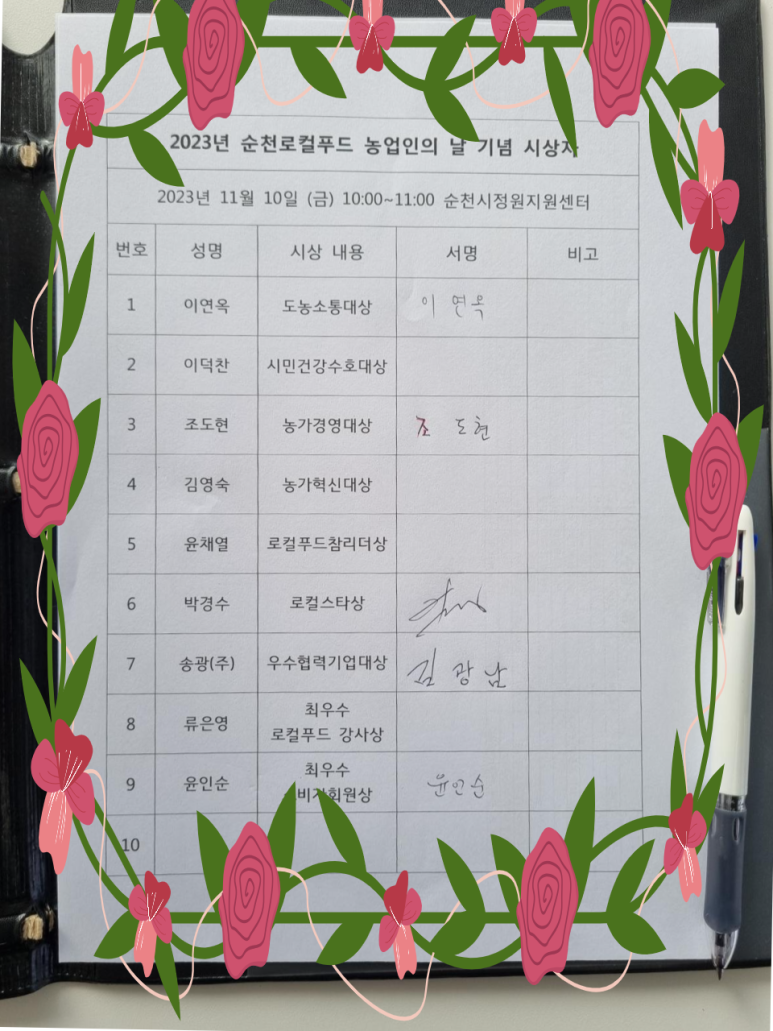 2023년 순천로컬푸드 농업인의 날 기념 시상자
2023년 11월 10일 (금) 10:00~11:00 순천시정원지원센터
번호 성명 시상 내용 서명 비고
1 이연옥 도농소통대상 이연옥
2 이덕찬 시민건강수호대상
3 조도현 농가경영대상 조도현
4 김영숙 농가혁신대상
5 윤채열 로컬푸드참리더상
6 박경수 로컬스타상
7 송광(주) 우수협력기업대상 김광남
8 류은영 최우수
로컬푸드 강사상
9 윤인순 최우수 윤인순
10